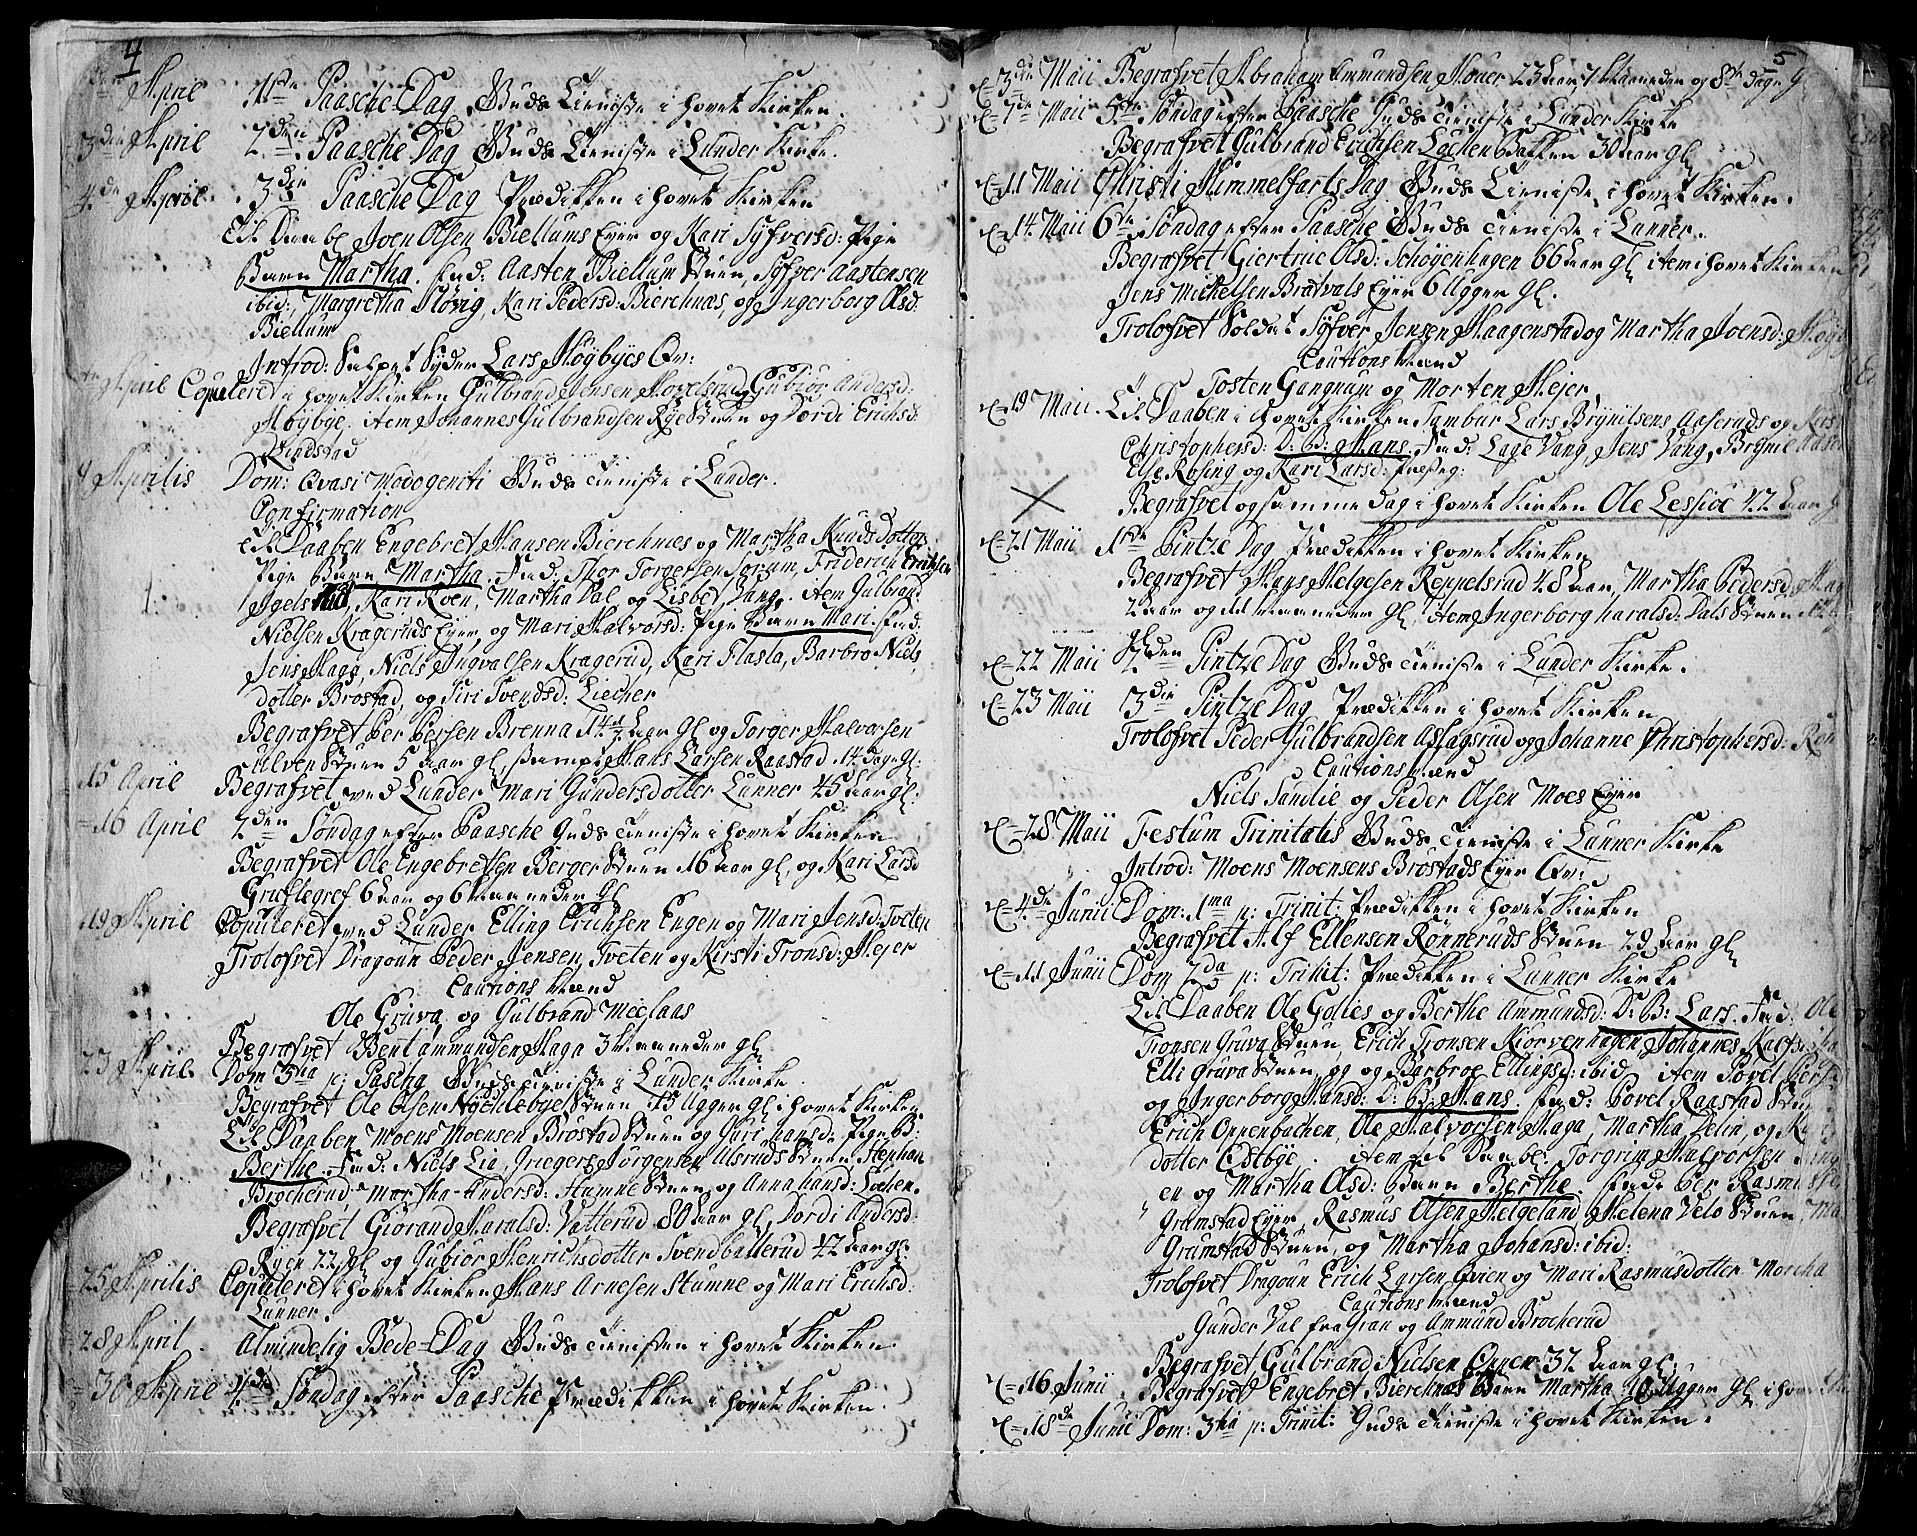 4
April 1ste Paasche Dag Guds Tieniste i hovet Kirken.
3de April 2den Paasche Dag Guds Tieniste i Lunder Kirke.
4de April 3die Paasche Dag Prædikken i hovet Kirken
Til Daab Joen Olsen Biellums Eyer og Kari Syfversd: Pige
Barn Martha. Fad: Aasten Biellum Stuen, Syfver Aastensen
ibid:, Margretha Høvig, Kari Pedersd: Bierchnæs, og Ingerborg Olsd:
Biellum
Introd: Lars Høybyes Qv:
April Copuleret i hovet Kirken Gulbrand Jensen Hovelsrud Gubiør Andersd:
Høybye. item Johannes Gulbrandsen Rye Stuen og Dordi Erichsd:
Rindstad
9 Aprilis Dom: Qvasi Modogeniti Guds Tieniste i Lunder.
Confirmation
Til Daaben Engebret Hansen Bierchnæs og Martha Knuds Dotter
Pige Barn Martha. Fad: Thor Torgersen Sorum, Friderich Erichsen
Kari Roen, Martha Dal og Lisbet Vang. item Gulbrand
Nielsen Krageruds Eyer og Mari Halvorsd: Pige Barn Mari. Fad:
Jens Haga, Niels Ingvalsen Kragerud, Kari Flasla, Barbro Niels
dotter Brostad, og Siri Svendsd: Liecher
Begrafvet Per Persen Brenna 14 Aar gl og Torger Halvorsen
Ulven Stuen 5 Aar gl, Hans Larsen Raastad 14 Dage gl:
15 April Begrafvet ved Lunder Mari Gundersdotter Lunner 45 Aar gl:
16 April 2den Søndag efter Paasche Guds Tieniste i hovet Kirken
Begrafvet Ole Engebretsen Berger Stuen 16 Aar gl, og Kari Larsd
Grieflegref 6 Aar og 6 Maaneder gl
19 April Copuleret ved Lunder Elling Erichsen Engen og Mari Jensd: Tveten
Trolofvet Dragoun Peder Jensen Tveten og Kirsti Tronsd: Hejer
Cautions Mænd
Ole Gruva og Gulbrand Meelaas
Begrafvet Bent Ammundsen Haga 3 Maaneder gl
23 April. Dom 3tia p: Pascha Guds Tieniste i Lunder Kirke.
Begrafvet Ole Olsen Nøchlebye Stuen 15 Ugger gl i hovet Kirken
Til Daaben Moens Moensen Brostad Stuen og Guri hansd: Pige B:
Berthe. Fad: Niels Lia, Griegers Jørgensen Alsruds Stuen Stephan
Brocherud, Martha Andersd: Stumne Stuen, og Anna hansd: Sochen.
Begrafvet Giorand Haralsd: Vatterud 80 Aar gl, Dordi Andersd:
Rysen 22 gl og Gubiør Henrichsdotter Svendballerud 42 Aar gl:
25 Aprilis Copuleret i hovet Kirken Hans Arnesen Stumne og Mari Erichsd:
Lunner.
28 April. Almindelig Bede-Dag Guds Tieniste i hovet Kirken
30 April 4de Søndag efter Paasche Prædikken i hovet Kirken.
5
3de Maii Begrafvet Abraham Ammundsen Houer 23 Aar 7 Maaneder og 8te Dage g
7de Maii 5te Søndag efter Paasche Guds Tieniste i Lunder Kirke
Begrafvet Gulbrand Erichsen Løchen Bakken 30 Aar gl
11 Maii Christi Himmelfarts Dag Guds Tieniste i hovet Kirken.
14 Maii 6te Søndag efter Paasche Guds Tieniste i Lunner.
Begrafvet Giertrue Olsd: Schøgenhagen 66 Aar gl item i hovet Kirken
Jens Michelsen Bratvals Eyer 6 Ugger gl.
Trolofvet Soldat Syfver Jensen Haagenstad og Martha Joensd: Høyb
Cautions Mænd
Tosten Gangnum og Morten Hejer
19 Maii. Til Daaben i hovet Kirken Tambur Lars Brynilsens Aaserud og
Christophersd: D: B: Hans. Fad: Lage Vang, Jens Vang, Brynil Aase
Elle Rosing og Kari Larsd:
Begrafvet og samme Dag i hovet Kirken Ole Lessiøe 42 Aar g
21 Maii 1ste Pintze Dag Prædikken i hovet Kirken
Begrafvet Hans Helgesen Reppelsrud 48 Aar, Martha Pedersd: Hag
2 Aar og Maaneder gl, item Ingerborg haralsd: Dals Stuen
gl
22 Maii 2den Pintze Dag Guds Tieniste i Lunder Kirke.
23 Maii 3die Pintze Dag Prædikken i hovet Kirken
Trolofvet Peder Gulbrandsen Aslagsrud og Johanne Christophersd:
Cautions Mænd
Niels Sandlie og Peder Olsen Moes Eyer
28 Maii Festum Trinitatis Guds Tieniste i Lunner Kirke
Introd: Moens Moensens Brostads Eyer Qv:
4de Junii Dom: 1ma p: Trinit: Prædikken i hovet Kirken
Begrafvet Alf Ellensen Rønneruds Stuen 29 Aar gl
11 Junii Dom 2da p: Trinit: Prædikken i Lunner Kirke
Til Daaben Ole Golies og Berthe Ammundsd: D: B: Lars. Fad: Ole
Tronsen Gruva Stuen, Erich Tronsen Kiørvenhagen, Johannes
Elli Gruva Stuen, og Barbroe Ellingsd: ibid. item Povel
og Ingerborg Hansd: D: B: Hans. Fad: Povel Raastad
Erich Oppenbachen, Ole Halvorsen Haga, Martha Velin, og
dotter Østbye. item til Daab: Torgrim Halvorsen
en og Martha Olsd: Barn Berthe. Fad: Per Rasmus
Grumstad Eyer, Rasmus Olsen Helgeland, Helena Velo Stuen
Grumstad Stuen, og Martha Johansd: ibid:
Trolofvet Dragoun Erich Larsen Qvien og Mari Rasmusdotter Morcha
Cautions Mænd
Gunder Dal fra Gran og Ammund Brocherud
Begrafvet Gulbrand Nielsen Oppen 37 Aar gl:
16 Junii. Begrafvet Engebret Bierchnæs Barn Martha 10 Ugger gl i hov
18de Junii Dom: 3tia p: Trinit: Guds Tieniste i hovet Kirken.